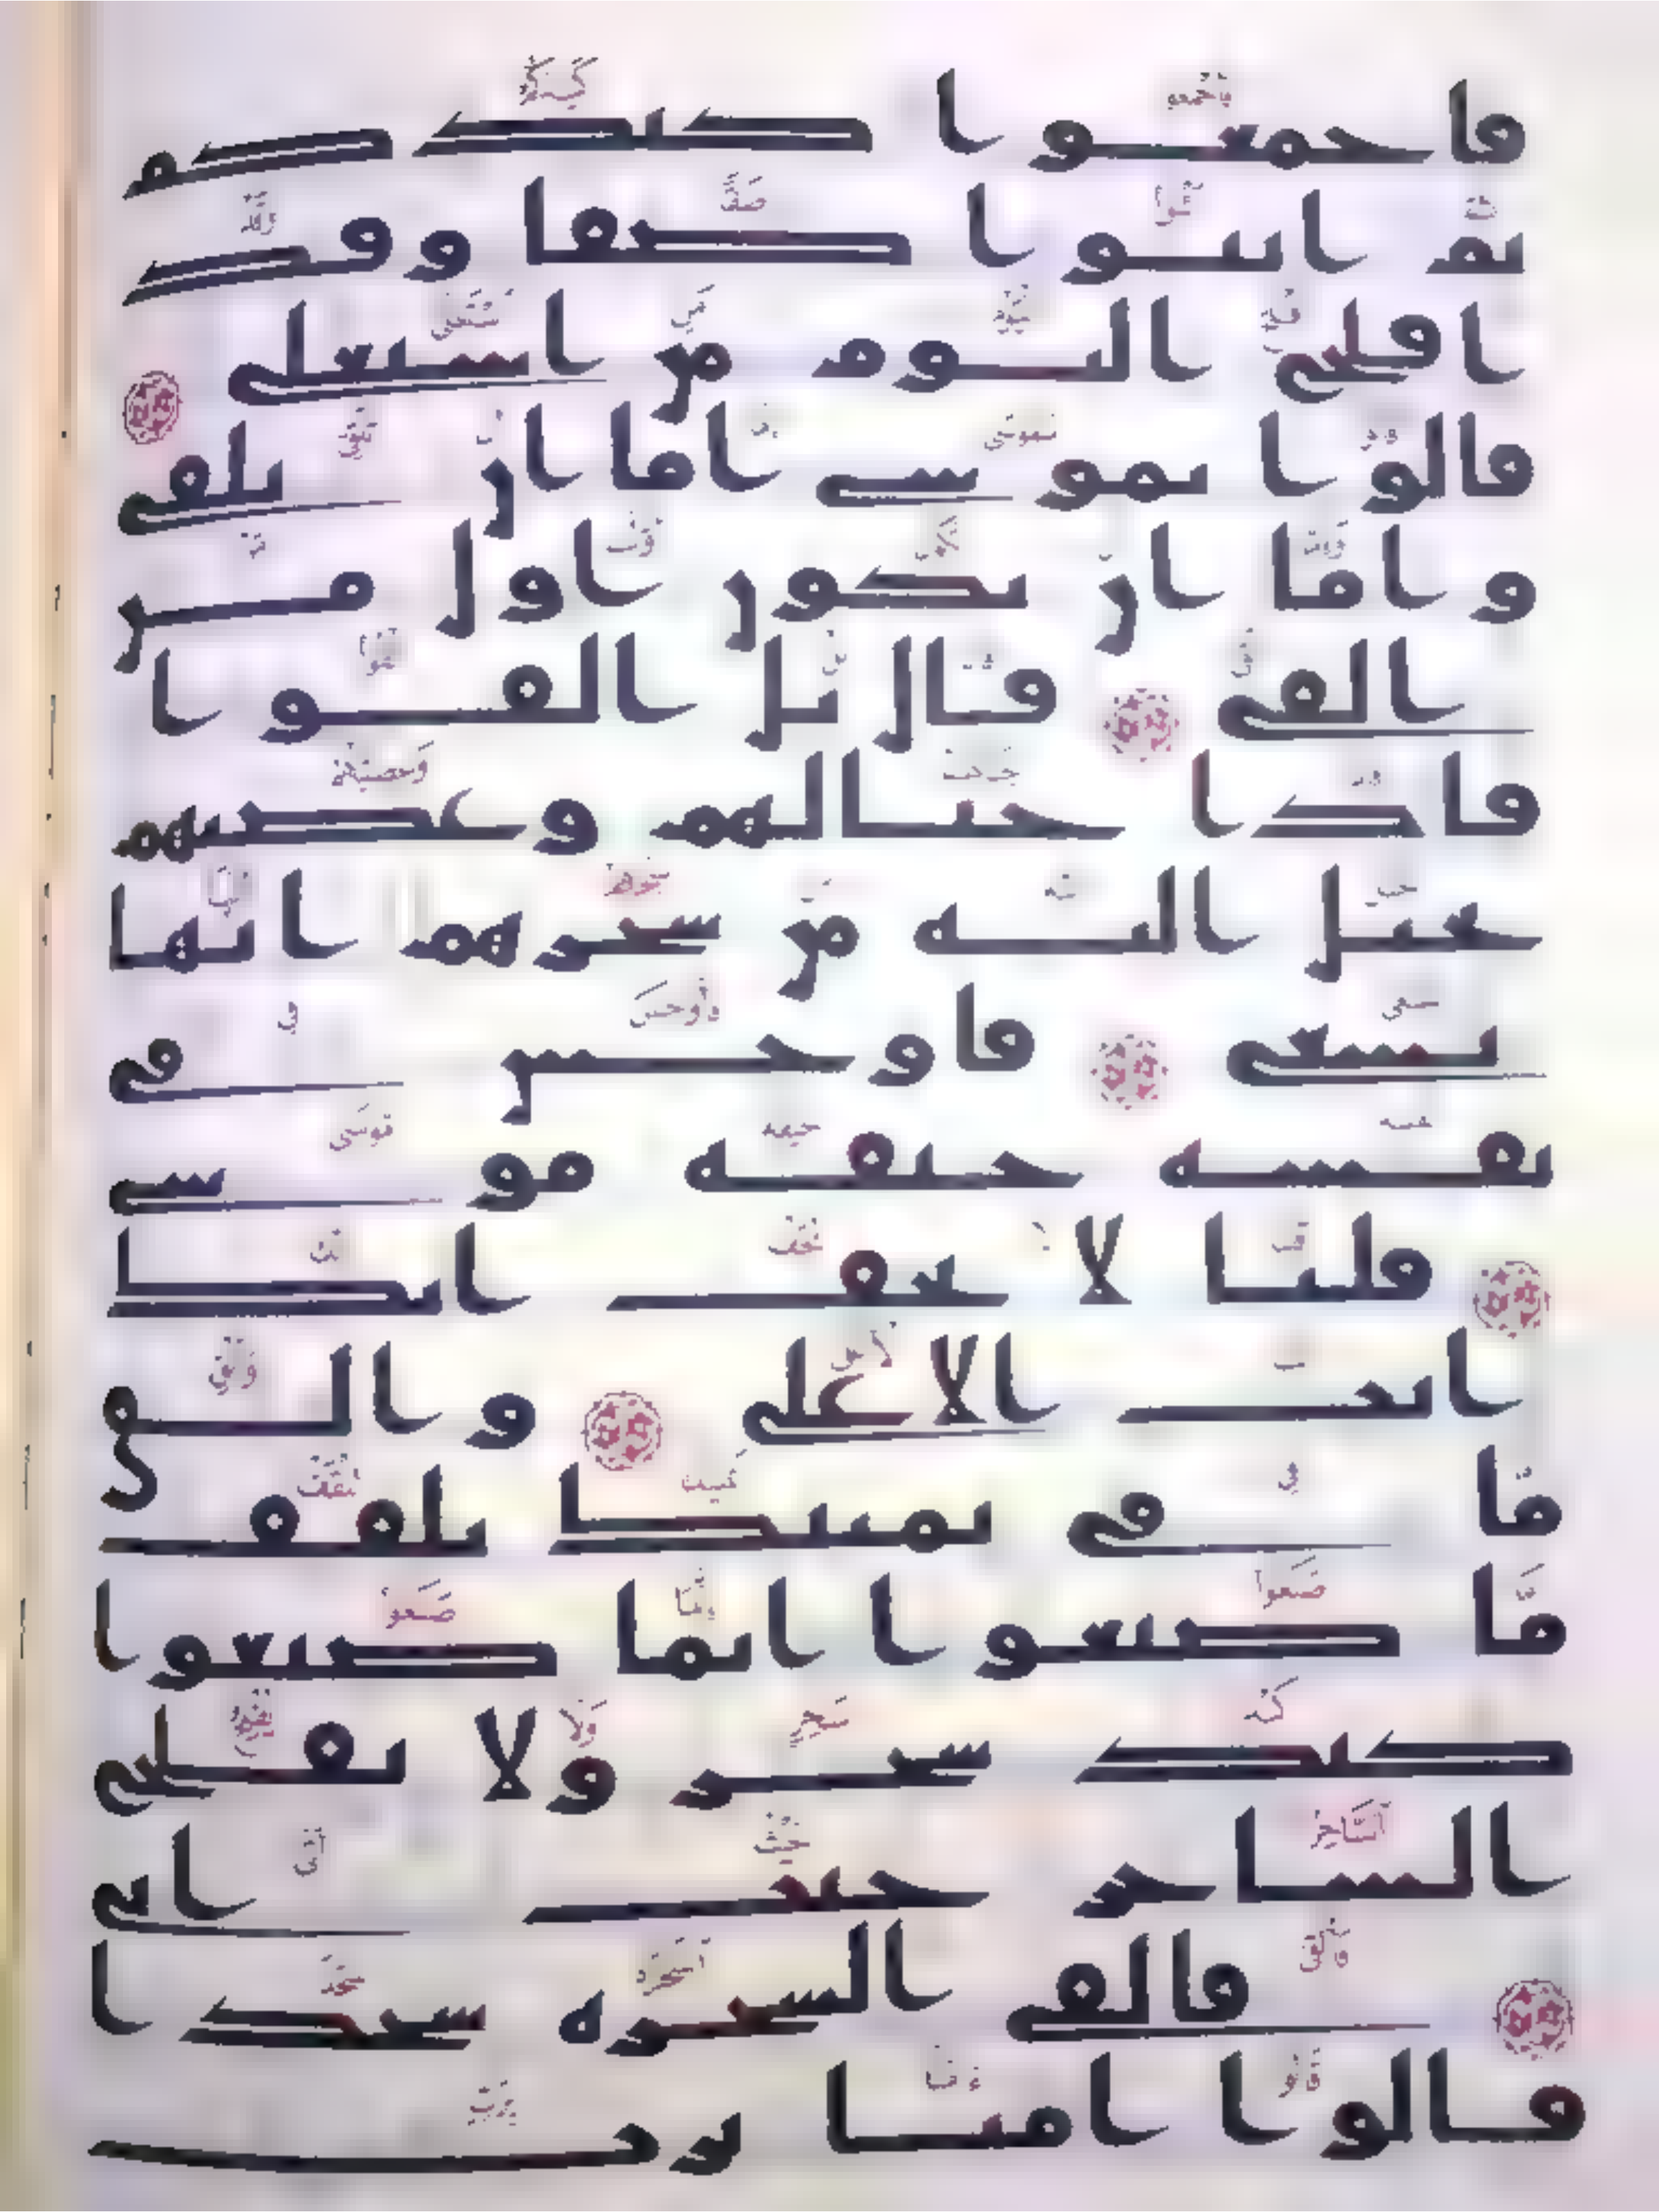 فاجمعوا كيدكم
ثم ائتوا صفا وقد
افلح اليوم من استعلى
قالوا يموسى اما ان تلقى
واما ان نكون اول من
القى قال بل القوا
فاذا حبالهم وعصيهم
يخيل اليه من سحرهم انها
تسعى فاوجس فى
نفسه خيفة موسى
قلنا لا تخف انك
انت الاعلى والق
ما فى يمينك تلقف
ما صنعوا انما صنعوا
كيد سحر ولا يفلح
الساحر حيث اتى
فالقى السحرة سجدا
قالوا امنا برب